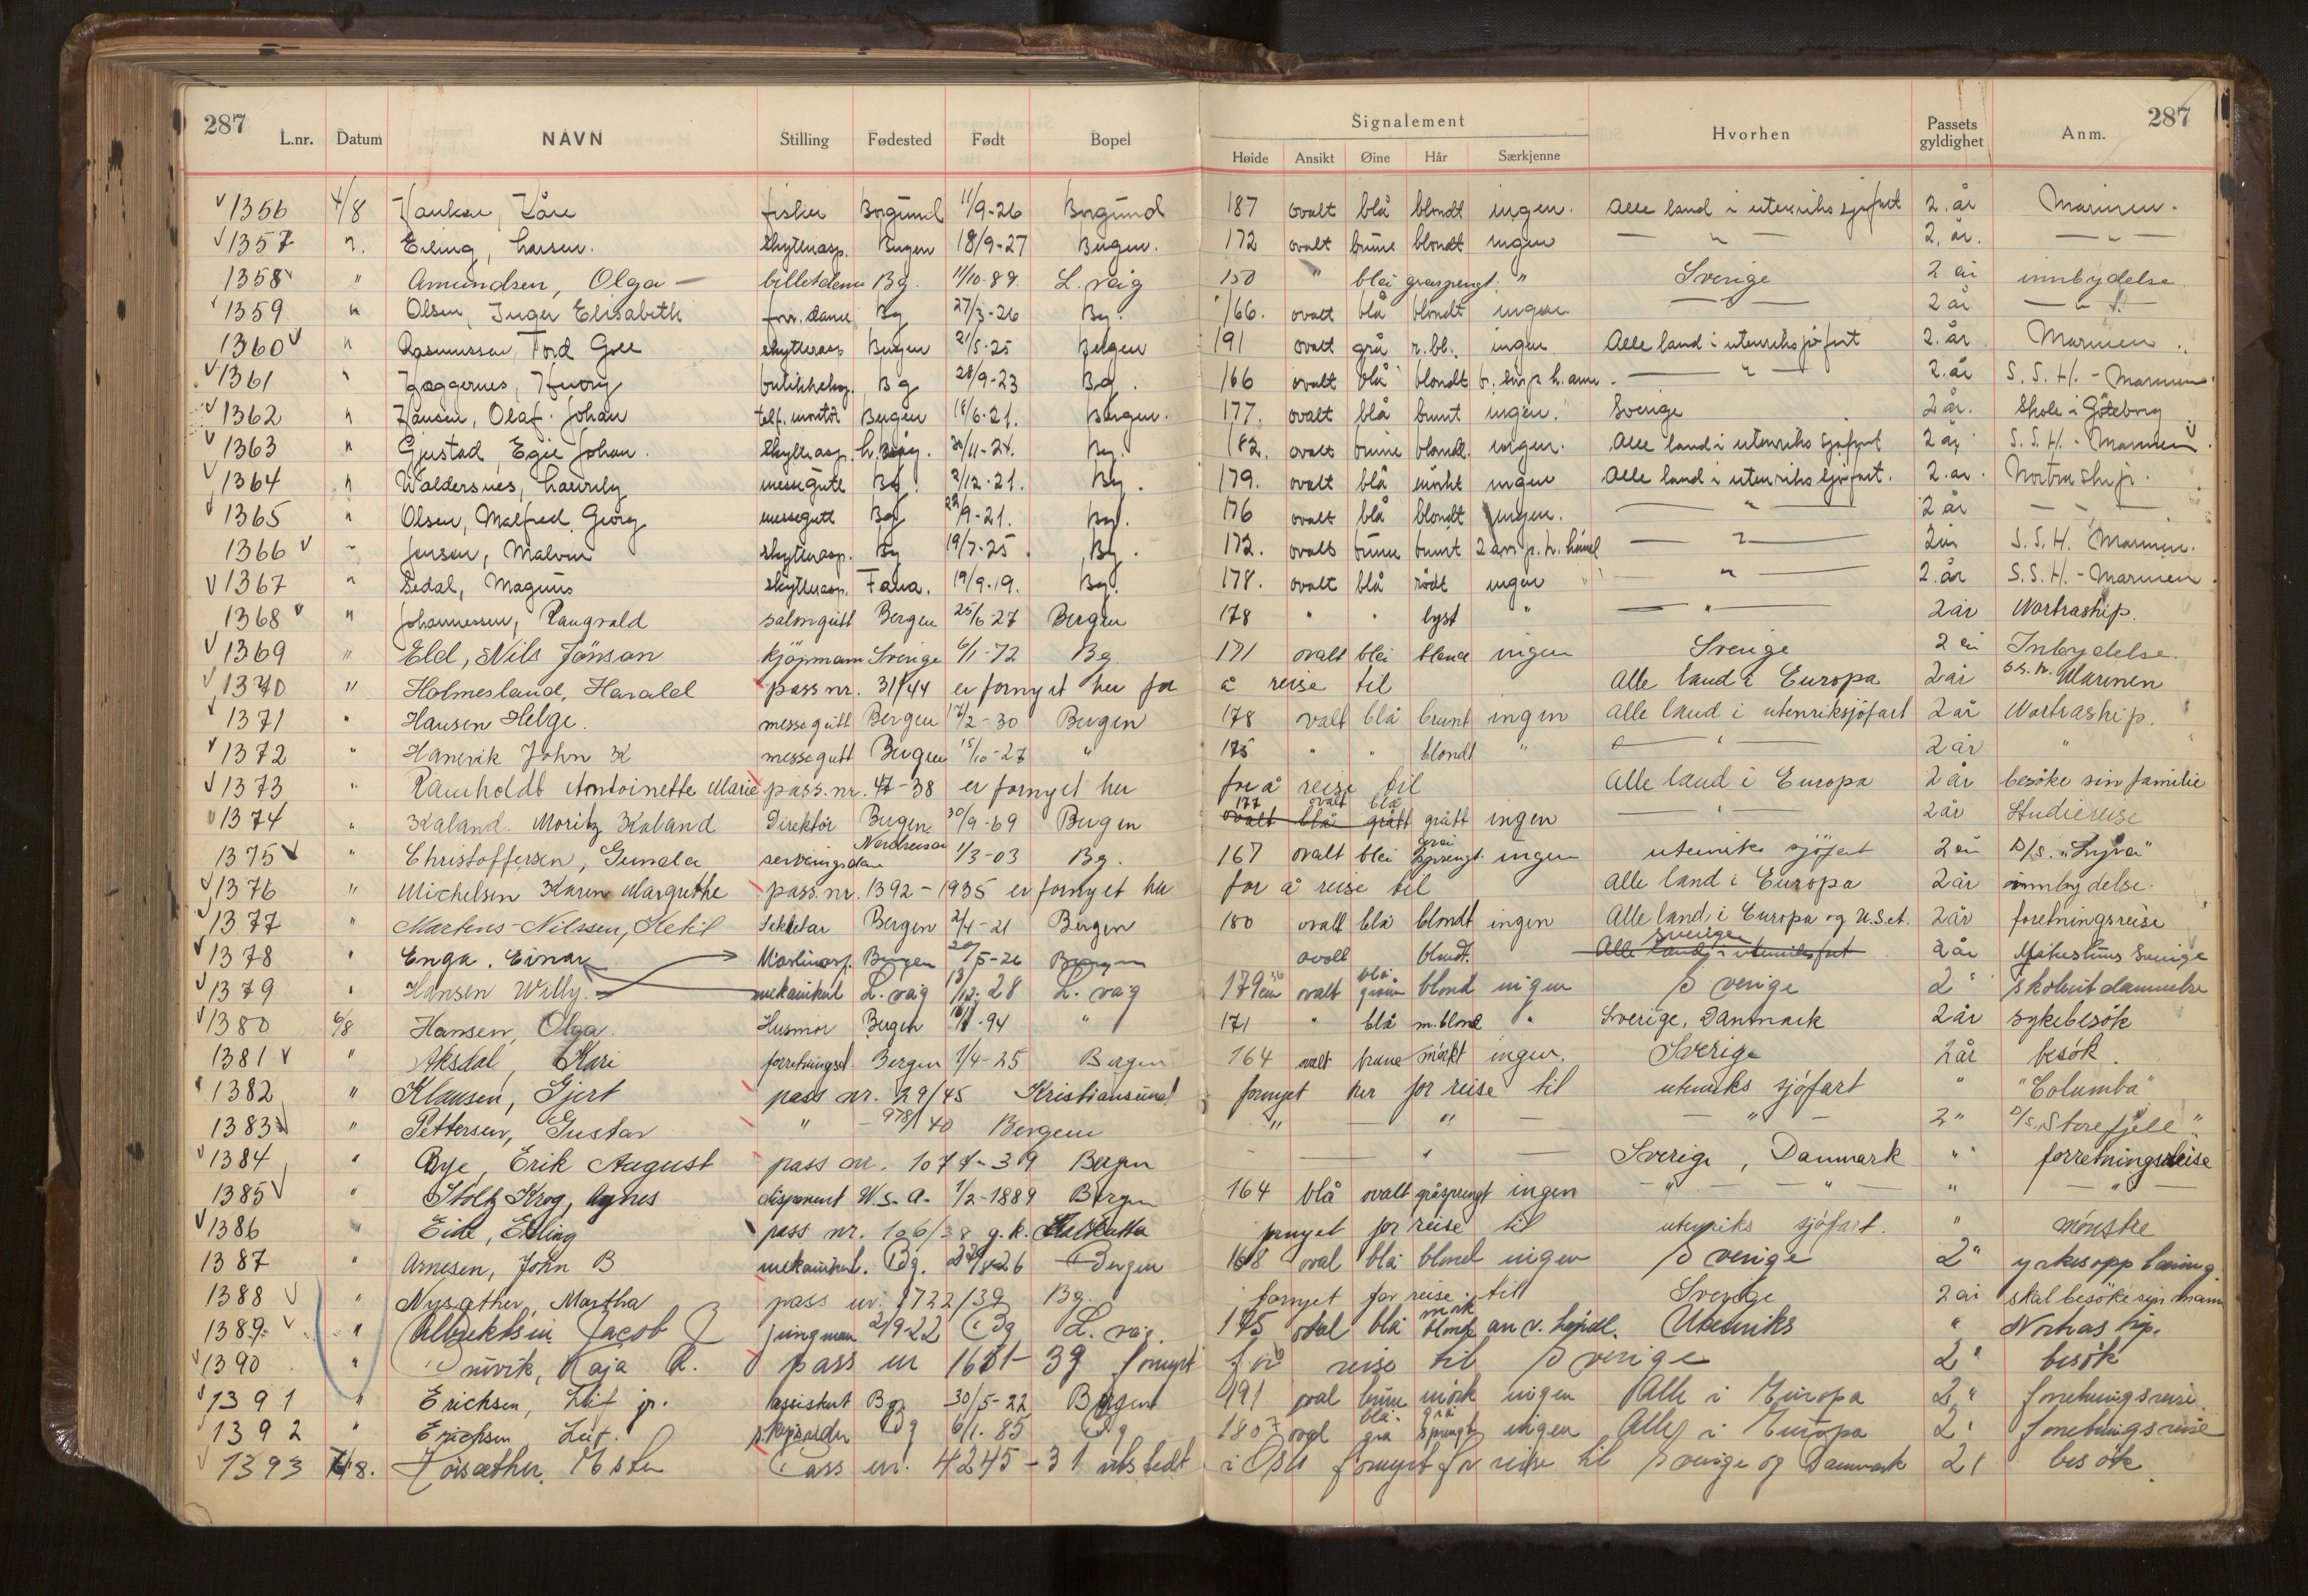 287 287
Signalement
L.nr. Datum NAVN Stilling Fødested Født Bopel Høide Ansikt Øine Hår Særkjenne Hvorhen Passets gyldighet Anm.
1356 4/8 Kåre fisker Borgund 11/9-26 Borgund 187 ovalt blå blondt ingen. Alle land i utenriks sjøfart 2. år Marinen.
1357 ". Erling, Larsen. skytterasp. Bergen 18/9-27 Bergen. 172 ovalt brune blondt ingen — " — 2. år. — " —
1358 " Amundsen, Olga — billetdame Bg. 11/10-89. L. våg 150 " blå gråsprengt. " Sverige 2 år innbydelse.
1359 " Olsen, Inger Elisabeth forr. dame Bg 27/3-26 Bg. 166. ovalt blå blondt ingen. — " — 2 år — " —
1360 " Rasmussen, Tord skytterasp Bergen 21/5-25 Bergen 191 ovalt grå r.bl. ingen Alle land i utenriks sjøfart 2. år Marinen.
1361 " butikkeksp. Bg 28/9-23 Bg. 166 ovalt blå blondt h. arm. — " — 2. år S. S. H. - Marinen.
1362 " Hansen, Olaf. Johan telf. montör Bergen 18/6-21. Bergen. 177. ovalt blå brunt ingen. Sverige 2 år. Skole i Göteborg
1363 " Gjerstad, Egil Johan. skytterasp. 30/11-24. Bg. 182. ovalt brune blondt. ingen. Alle land i utenriks sjøfart 2 år S. S. H. - Marinen.
1364 " Waldersnes, messegutt Bg. 3/12-21. Bg. 179. ovalt blå mörkt ingen Alle land i utenriks sjøfart. 2. år. Nortraship.
1365 " Olsen, Malfred Georg messegutt Bg 22/9-21. Bg. 176 ovalt blå blondt ingen. — " — 2 år — " —
1366 " Jensen, Malvin skytterasp. Bg 19/7-25. Bg. 172. ovalt brune brunt 2 arr p. h. hånd — " — 2 år S. S. H. Marinen.
1367 " Sedal, Magnus skytterasp. Fana. 19/9-19. Bg. 178. ovalt blå rödt ingen — " — 2. år S. S. H. - Marinen.
1368 " Johannessen, Rangvald salongutt Bergen 25/6-27 Bergen 178 " " lyst " — " — 2 år Nortraship.
1369 " Eld, Nils Jönson kjöpmann Sverige 6/1-72 Bg. 171 ovalt blå blond ingen Sverige 2 år Inbydelse.
1370 " Holmesland, Harald pass nr. 31/44 er fornyet her for å reise til Alle land i Europa 2 år S.S.H. Marinen
1371 " Hansen Helge. messegutt Bergen 17/2-30 Bergen 178 ovalt blå brunt ingen Alle land i utenriksjöfart 2 år Nortraship.
1372 " Hanevik John K messegutt Bergen 15/10-27 " 175 " " blondt " — " — 2 år "
1373 " Ramholdt Antoinette Marie pass. nr. 47-38 er fornyet her for å reise til Alle land i Europa 2 år besöke sin familie
1374 " Kaland. Moritz Kaland Direktör Bergen 30/9-69 Bergen 177 ovalt blå ovalt blå grått grått ingen — " — 2 år Studiereise
1375 " Christoffersen, Gunda serveringsdame Nordreisa 1/3-03 Bg. 167 ovalt blå grå sprengt. ingen utenriks sjöfart 2 år D/S. "Lyra"
1376 " Michelsen Karen Margrethe pass. nr. 1392-1935 er fornyet her for å reise til Alle land i Europa 2 år innbydelse.
1377 " Martens-Nilssen, Ketil Sekretær Bergen 2/4-21 Bergen 180 ovalt blå blondt ingen Alle land i Europa og U.S.A. 2 år foretningsreise
1378 " Enga. Einar Bergen 20/5-26 Bergen ovalt blondt. Sverige Alle land i utenriksfart 2 år Sverige
1379 " Hansen Willy. mekanikerl L. våg 13/12-28 L. våg 179 cm ovalt blå grönn blond ingen Sverige 2 " skoleutdannelse
1380 6/8 Hansen, Olga. Husmor Bergen -94 " 171 " blå m.blond " Sverige, Danmark 2 år sykebesök
1381 " Aksdal, Kari forretningsd Bergen 1/4-25 Bergen 164 ovalt brune mörkt ingen. Sverige 2 år besök.
1382 " Klausen, Gjert pass nr. 29/45 Kristiansund fornyet her for reise til utenriks sjöfart " "Columba"
1383 " Pettersen, Gustav " — 978/40 Bergen " — " — — " — 2 " D/S. "Storefjell"
1384 " Bye, Erik August pass nr. 1074-39 Bergen — " — Sverige, Danmark " forretningsreise
1385 " Stoltz Krog, Agnes disponent U.S.A. 1/2-1889 Bergen 164 blå ovalt gråsprengt ingen — " — " — " — " —
1386 " Eide, Erling pass nr. 106/38 g.k. Kalkutta fornyet for reise til utenriks sjöfart. " mönstre
1387 " Arnesen, John B mekanikerl. Bg. Bergen 168 oval blå blond ingen Sverige 2 " yrkesopplæring
1388 " Nysæther, Martha pass nr. 1722/39 Bg. fornyet for reise til Sverige 2 år skal besöke sin mann
1389. " Albrektsen Jacob J jungman 2/9-22 Bg L. våg. 175 oval blå mörk blond arr v. håndl. Utenriks " Nortraship.
1390 " Kaja pass nr 1651-39 fornyet for reise til Sverige 2 " besök
1391 " Erichsen, Leif jr. assistent Bg. 30/5-22 Bergen 191 oval brune mörk ingen Alle i Europa 2 " forretningsreise.
1392 " Erichsen, Leif. skipsreder Bg 6/1-85 Bg 180 oval blå grå grå sprengt ingen Alle i Europa 2 " forretningsreise
1393 7/8. Pass nr. 4245-31 utstedt i Oslo fornyet for reise til Sverige og Danmark 2 " besök.